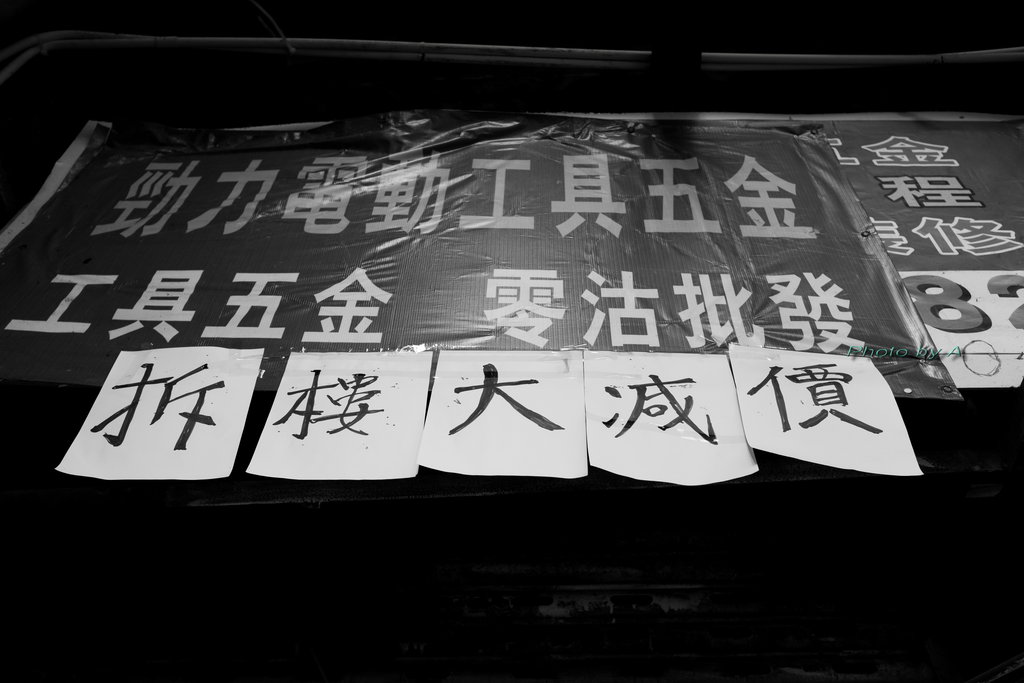 勁力電動工具五金
工具五金 零沽批發
拆樓大減價
五金
程
裝修
82
Photo by A